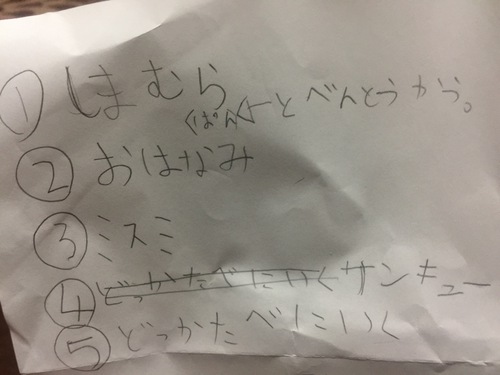 ①しまむら
ぱんとべんとうかう。
②おはなみ
③ミスミ
④どっかたべにいくサンキュー
⑤どっかたべにいく